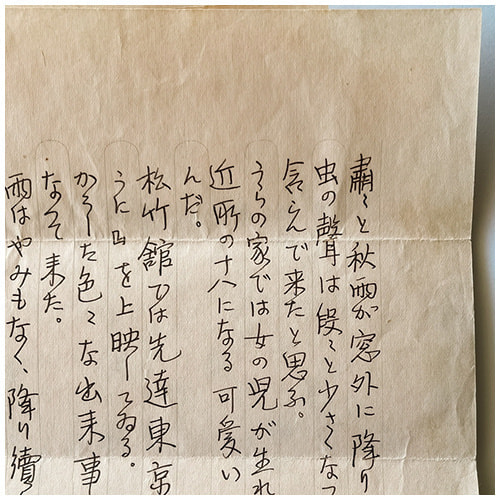 肅々と秋雨が窓外に降り
虫の聲は段々と少さくなつ
んで来たと思ふ。
うらの家では女の児が生れ
近所の十八になる可愛い
んだ。
松竹館では先達東京
うに『』を上映してゐる。
かうした色々な出来事
なつて来た。
雨はやみもなく、降り續